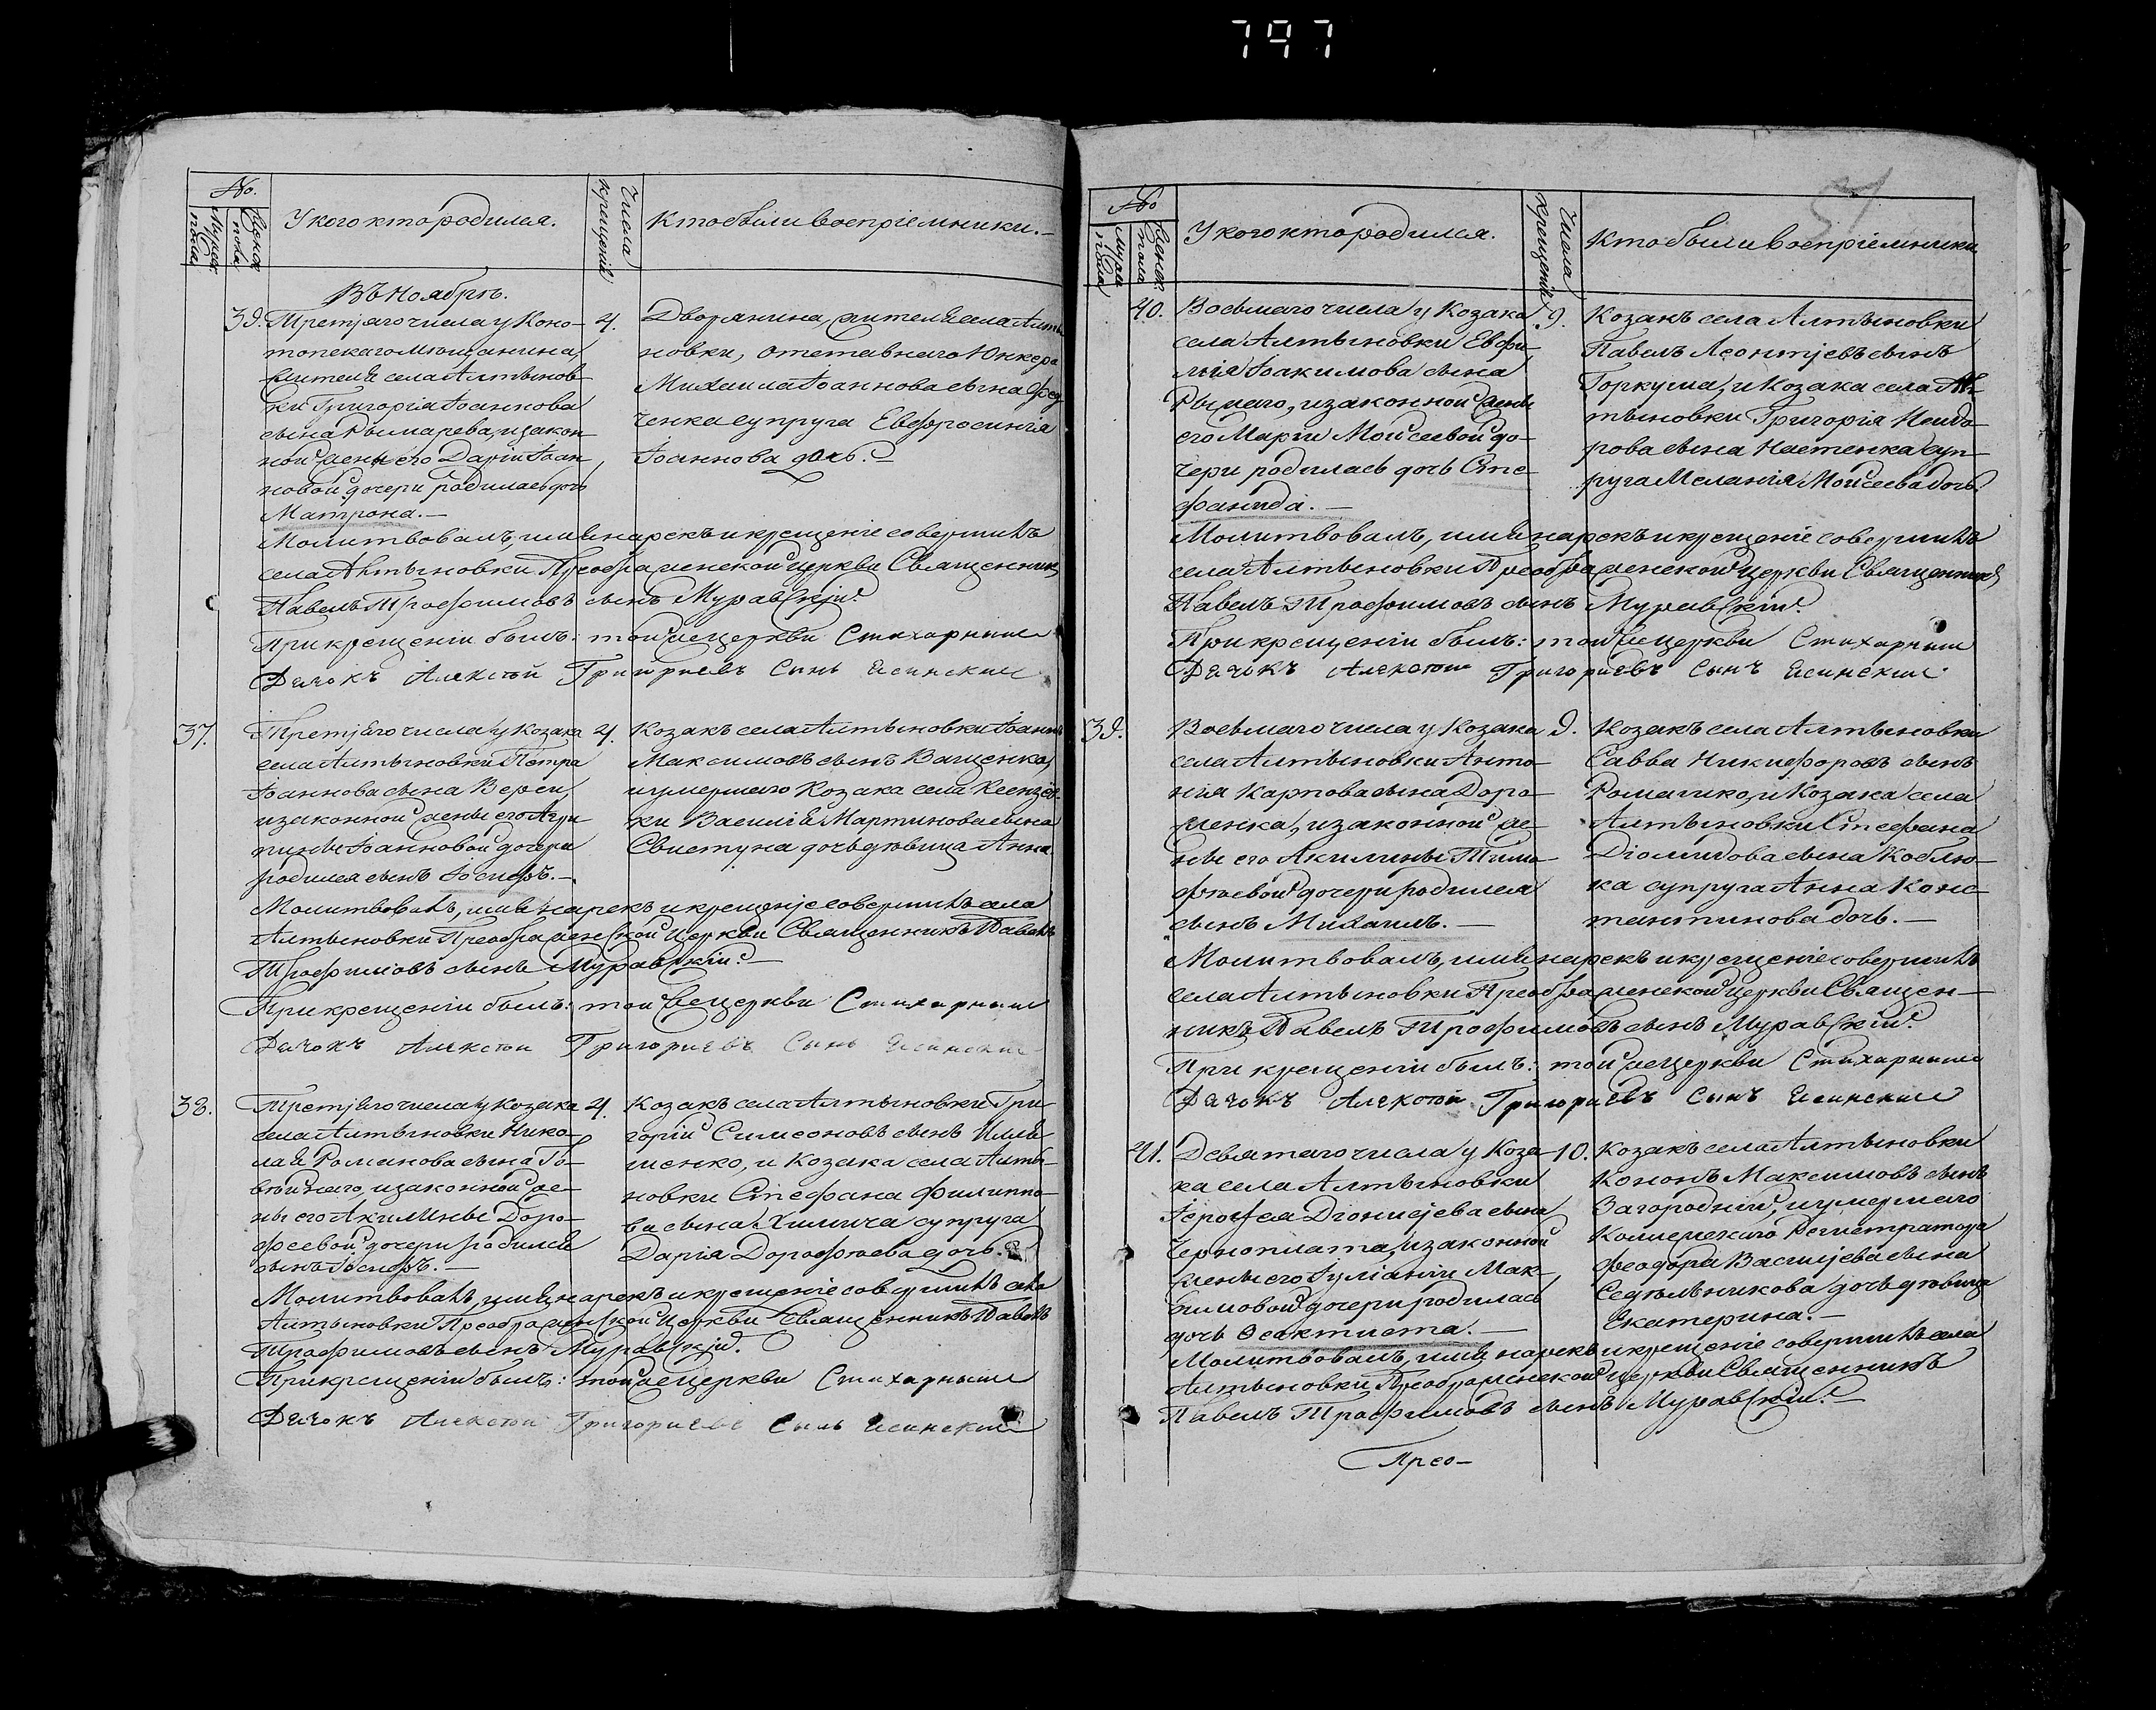 797
No.
Мужеск. пола
Женск. пола
У кого кто родился.
Числа крещенія
Кто были воспріемники.
Въ Ноябрѣ.
39. Третьяго числа у Коно-
топскаго Мѣщанина,
жителя села Алтынов-
ки Григорія Іоаннова
сына Рымарева, и закон
ной жены его Даріи Іоан
новой дочери родилась дочь
Матрона.—
4.
Дворянина, жителя села Алты
новки, отставнаго Юнкера
Михаила Іоаннова сына
ченка супруга Евфросинія
Іоаннова дочь.
Молитвовалъ, имя нарекъ и крещеніе совершилъ
села Алтыновки Преображенской церкви Священникъ
Павелъ Трофимовъ сынъ Муравскій.
При крещеніи былъ: той же церкви Стихарный
Дячокъ Алексѣй Григориевъ Сынъ Ясинский
37. Третьяго числа у Козака
села Алтыновки Петра
Іоаннова сына Вереи,
и законной жены его Агри
пины Іоанновой дочери
родился сынъ Іосифъ.—
4.
Козакъ села Алтыновки Іоаннъ
Максимовъ сынъ Ващенко,
и умершаго Козака села
ки Василія Мартинова сына
Свистуна дочь дѣвица Анна.
Молитвовалъ, имя нарекъ и крещеніе совершилъ села
Алтыновки Преображенской церкви Священникъ Павелъ
Трофимовъ сынъ Муравскій.—
При крещеніи былъ: той же церкви Стихарный
Дячокъ Алексѣй Григориевъ Сынъ Ясинский
38. Третьяго числа у Козака
села Алтыновки Нико-
лая Романова сына Го-
вѣйнаго, и законной же-
ны его Акилины Доро-
феевой дочери родился
сынъ Іосифъ.—
4.
Козакъ села Алтыновки Гри
горій Симеоновъ сынъ
шенко, и Козака села Алты-
новки Стефана Филиппо-
ва сына Химича супруга
Дарія Дорофѣева дочь.
Молитвовалъ, имя нарекъ и крещеніе совершилъ села
Алтыновки Преображенской церкви Священникъ Павелъ
Трофимовъ сынъ Муравскій.
При крещеніи былъ: той же церкви Стихарный
Дячокъ Алексѣй Григориевъ Сынъ Ясинский
No
Мужс. пола
Женск. пола
У кого кто родился.
Числа крещеній
Кто были воспріемники
40. Восьмаго числа у Козака
села Алтыновки Евфи-
мія Іоакимова сына
Рыжаго, и законной жены
его Маріи Мойсеевой до-
чери родилась дочь Сте-
фанида.—
9.
Козакъ села Алтыновки
Павелъ Леонтьевъ сынъ
Горкуша, и Козака села Ал-
тыновки Григорія Исидо-
рова сына Настенка суп-
руга Меланія Мойсеева дочь.
Молитвовалъ, имя нарекъ и крещеніе совершилъ
села Алтыновки Преображенской церкви Священникъ
Павелъ Трофимовъ сынъ Муравскій.
При крещеніи былъ: той же церкви Стихарный
Дячокъ Алексѣй Григориевъ Сынъ Ясинский.
39. Восьмаго числа у Козака
села Алтыновки Анто-
нія Карпова сына Доро-
шенка, и законной же-
ны его Акилины Тимо-
фѣевой дочери родился
сынъ Михаилъ.—
9.
Козакъ села Алтыновки
Савва Никифоровъ сынъ
Ромашко, и Козака села
Алтыновки Стефана
Діомидова сына Коблю-
ка супруга Анна Конс-
тантинова дочь.—
Молитвовалъ, имя нарекъ и крещеніе совершилъ
села Алтыновки Преображенской церкви Священ-
никъ Павелъ Трофимовъ сынъ Муравскій.
При крещеніи былъ: той же церкви Стихарный
Дячокъ Алексѣй Григориевъ Сынъ Ясинский
41. Девятаго числа у Коза-
ка села Алтыновки
Іерофея Діонисьева сына
Чорноплата, и законной
жены его Іуліаніи Мак-
симовой дочери родилась
дочь Феоктиста.—
10.
Козакъ села Алтыновки
Кононъ Максимовъ сынъ
Загородній, и умершаго
Коллежскаго Регистратора
Феодора Васильева сына
Седѣльникова дочь дѣвица
Екатерина.—
Молитвовалъ, имя нарекъ и крещеніе совершилъ села
Алтыновки Преображенской церкви Священникъ
Павелъ Трофимовъ сынъ Муравскій.—
Прео-